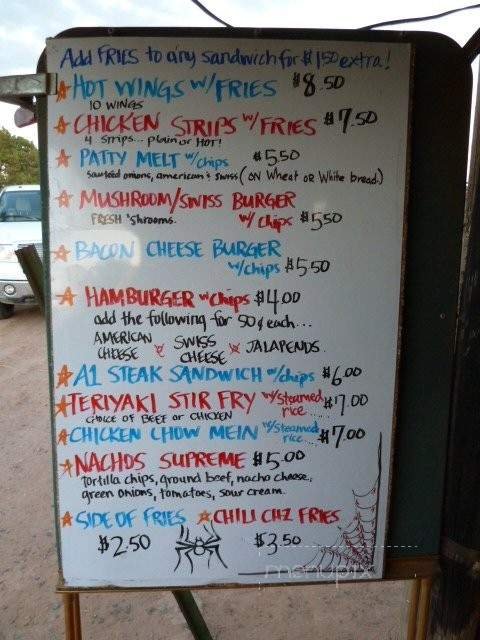 Add FRIES to any sandwich for $1.50 extra!
HOT WINGS W/FRIES $8.50
10 WINGS
CHICKEN STRIPS W/FRIES $7.50
4 strips... plain or HOT!
PATTY MELT w/chips $5.50
sauteed onions, american & swiss (ON Wheat OR White bread)
MUSHROOM/SWISS BURGER
FRESH 'shrooms. w/chips $5.50
BACON CHEESE BURGER
w/chips $5.50
HAMBURGER w/chips $4.00
add the following for 50¢ each...
AMERICAN CHEESE SWISS CHEESE JALAPENOS.
A1 STEAK SANDWICH w/chips $6.00
TERIYAKI STIR FRY w/steamed rice..... $7.00
CHOICE OF BEEF or CHICKEN
CHICKEN CHOW MEIN w/steamed rice.... $7.00
NACHOS SUPREME $5.00
tortilla chips, ground beef, nacho cheese,
green onions, tomatoes, sour cream.
SIDE OF FRIES CHILI CHZ FRIES
$2.50 $3.50
menupix